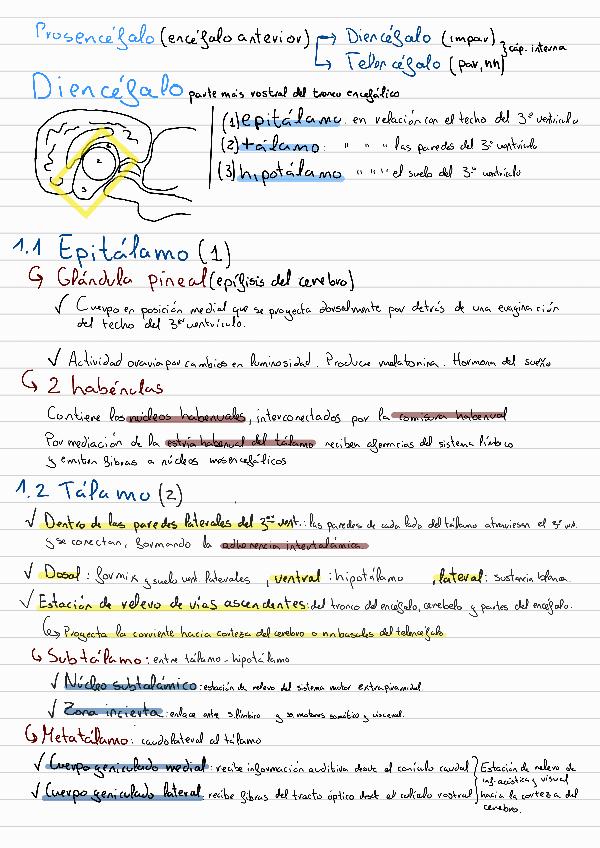 Prosencéfalo (encéfalo anterior) → Diencéfalo (impar)
→ Telencéfalo (par, nn) } cáp. interna
Diencéfalo parte más rostral del tronco encefálico
(1) epitálamo: en relación con el techo del 3º ventrículo
(2) tálamo: " " " las paredes del 3º ventrículo
(3) hipotálamo " " " el suelo del 3º ventrículo
1
2
3
1.1 Epitálamo (1)
↳ Glándula pineal (epífisis del cerebro)
✓ Cuerpo en posición medial que se proyecta dorsalmente por detrás de una evaginación
del techo del 3er ventrículo.
✓ Actividad ovaria por cambios en luminosidad. Produce melatonina. Hormona del sueño
↳ 2 habénulas
Contiene los núcleos habenuales, interconectados por la comisura habenual
Por mediación de la estría habenual del tálamo reciben aferencias del sistema límbico
y emiten fibras a núcleos mesencefálicos
1.2 Tálamo (2)
✓ Dentro de las paredes laterales del 3er vent.: las paredes de cada lado del tálamo atraviesan el 3er vent.
y se conectan, formando la adherencia intertalámica
✓ Dosal: fornix y suelo vent. laterales, ventral: hipotálamo, lateral: sustancia blanca.
✓ Estación de relevo de vías ascendentes: del tronco del encéfalo, cerebelo y partes del encéfalo.
↳ Proyecta la corriente hacia corteza del cerebro o nn basales del telencéfalo
↳ Subtálamo: entre tálamo - hipotálamo
✓ Núcleo subtalámico: estación de relevo del sistema motor extrapiramidal.
✓ Zona incierta: enlace entre s. límbico y ss motores somático y visceral.
↳ Metatálamo: caudolateral al tálamo
✓ Cuerpo geniculado medial: recibe información auditiva desde el colículo caudal } Estación de relevo de
inf. acústica y visual
✓ Cuerpo geniculado lateral: recibe fibras del tracto óptico desde el colículo rostral } hacia la corteza del
cerebro.